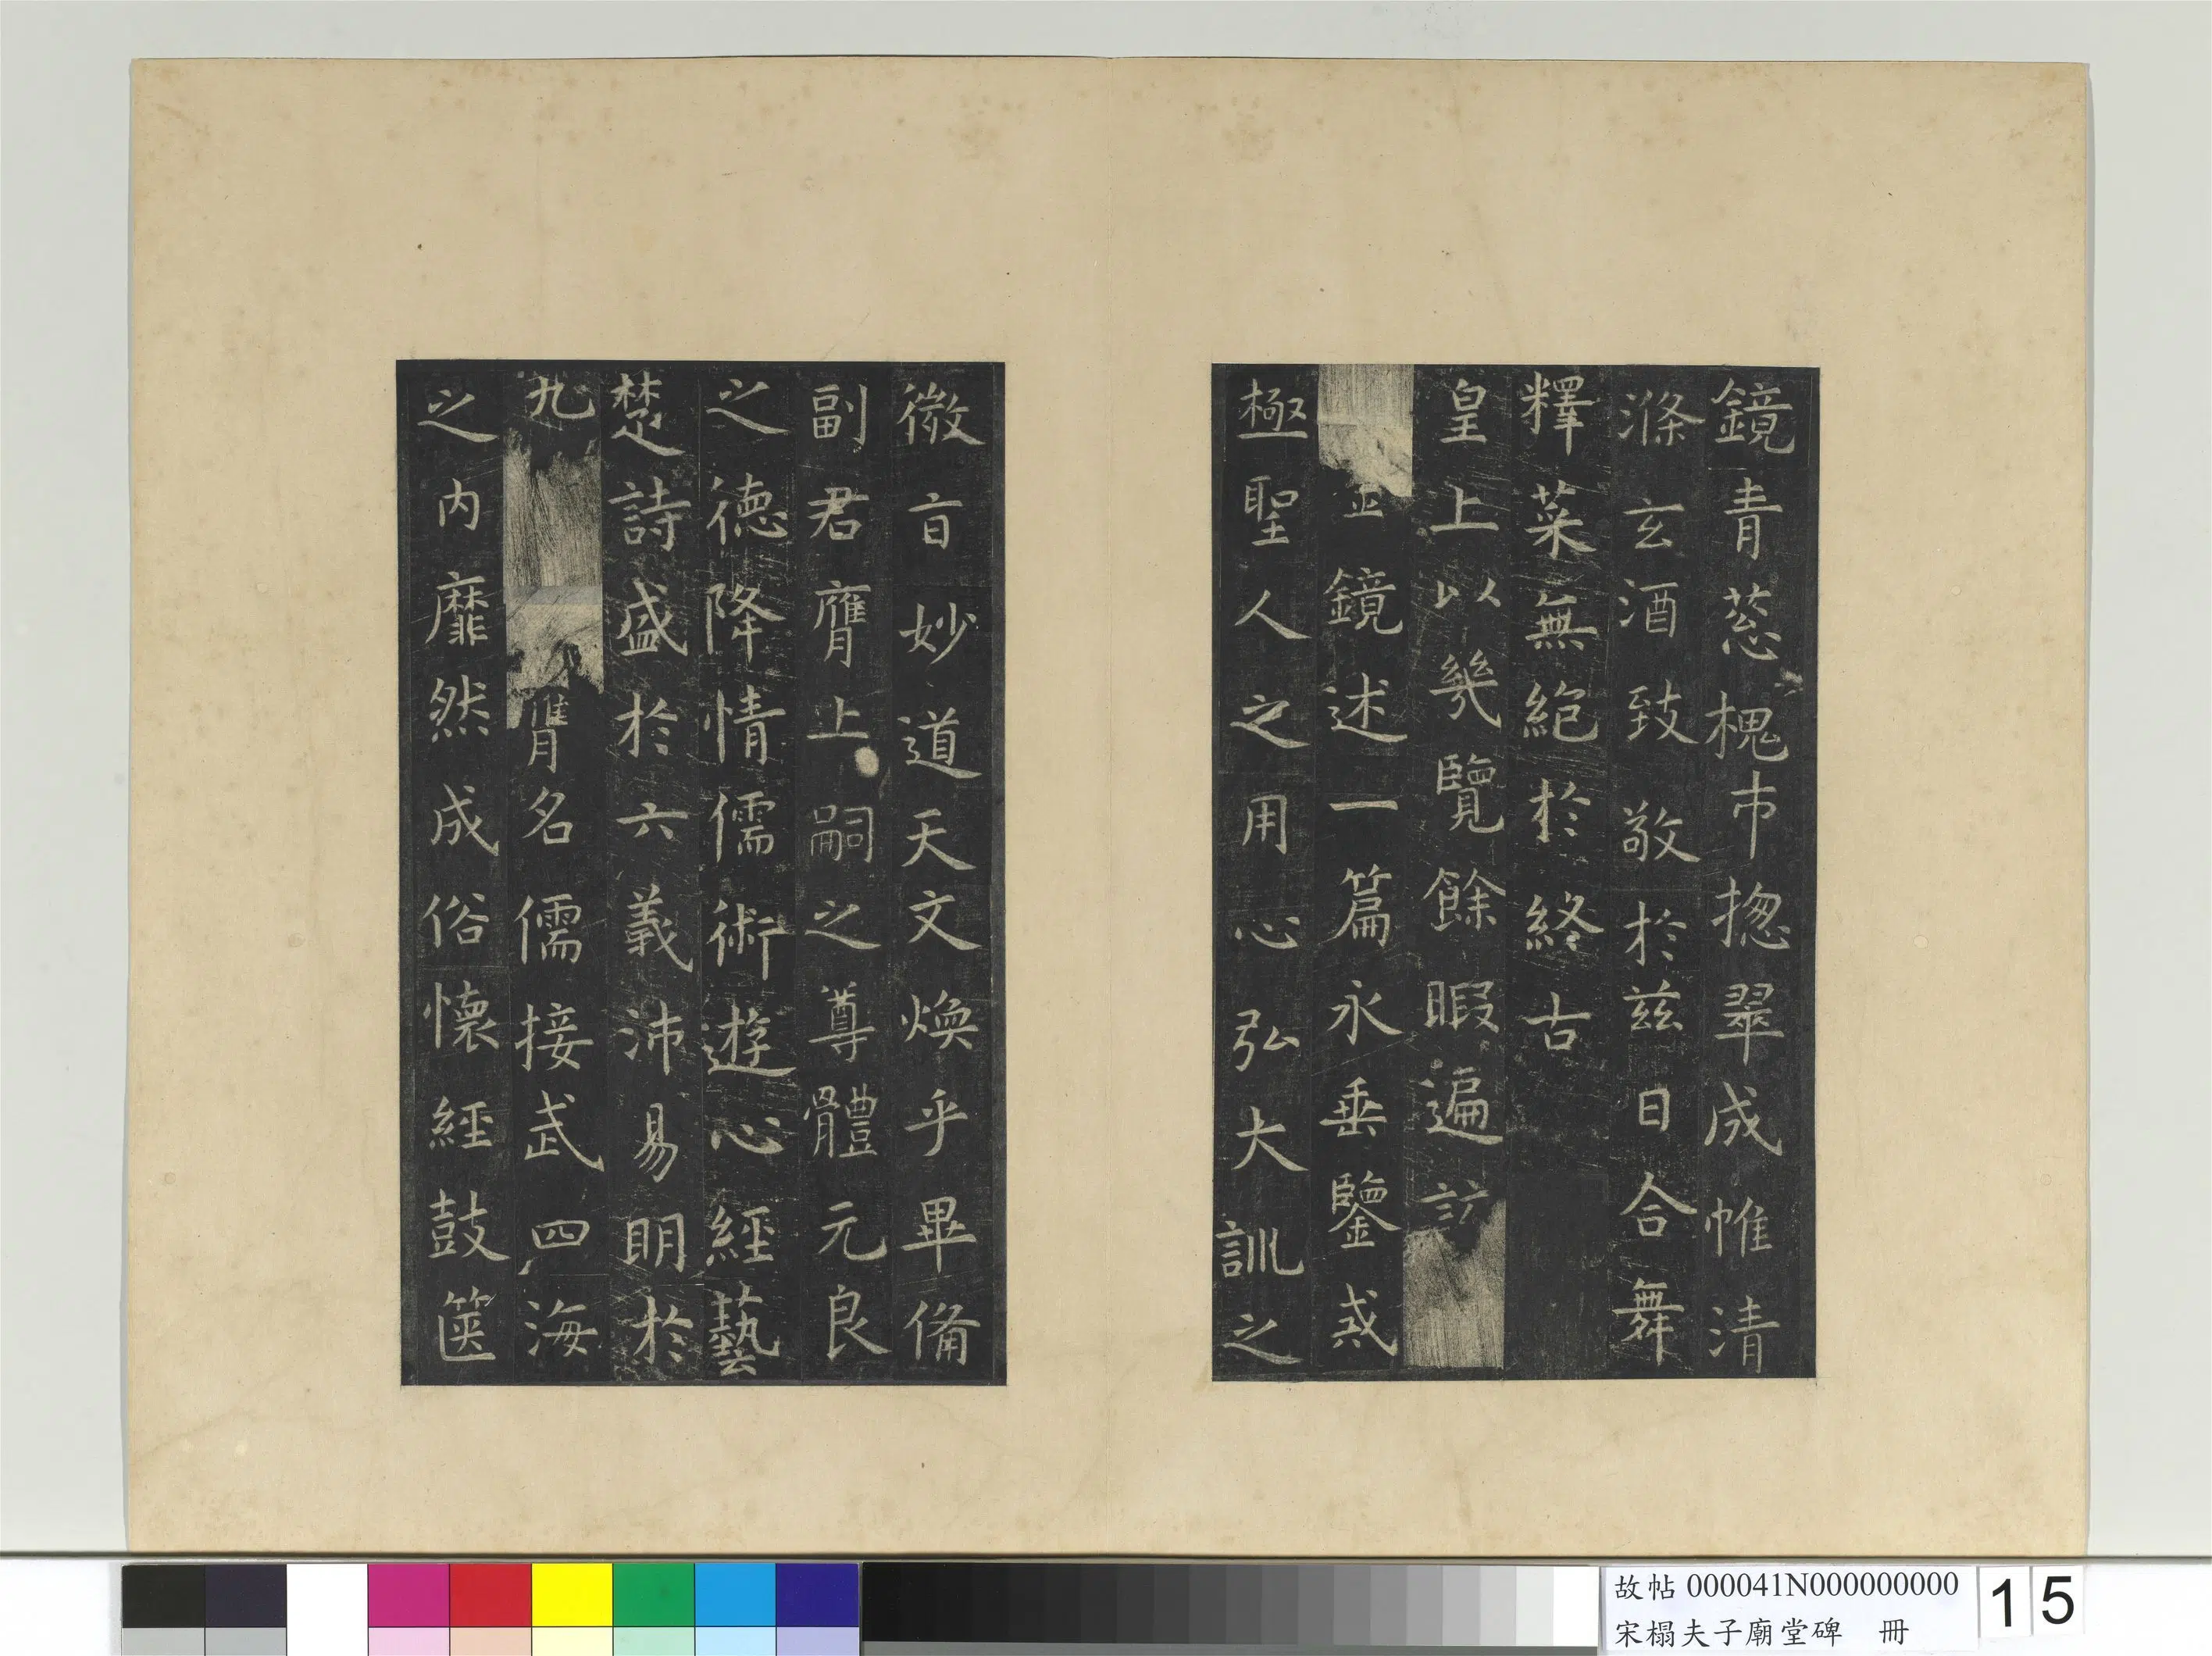 鏡青蔥槐市揔翠成帷清
滌玄酒致敬於茲日合舞
釋菜無絕於終古
皇上以幾覽餘暇遍訪
鏡述一篇永垂鑒戒
極聖人之用心弘大訓之
微旨妙道天文煥乎畢備
副君膺上嗣之尊體元良
之德降情儒術遊心經藝
楚詩盛於六義沛易明於
九
胥名儒接武四海
之內靡然成俗懷經鼓篋
故帖 000041N000000000
宋榻夫子廟堂碑 冊
15